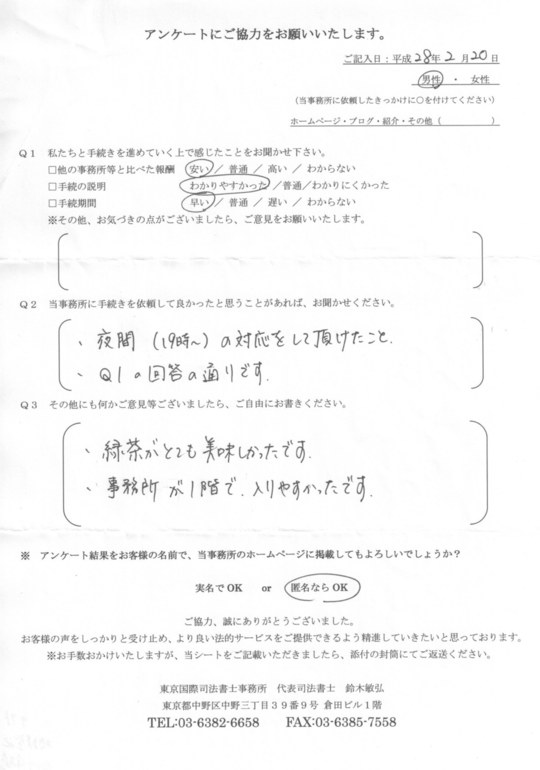 アンケートにご協力をお願いいたします。
ご記入日：平成28年2月20日
男性 ・ 女性
（当事務所に依頼したきっかけに○を付けてください）
ホームページ・ブログ・紹介・その他（　　　　　）
Q1 私たちと手続きを進めていく上で感じたことをお聞かせ下さい。
□他の事務所等と比べた報酬 安い／ 普通 ／ 高い ／ わからない
□手続の説明 わかりやすかった ／普通／わかりにくかった
□手続期間 早い／ 普通 ／ 遅い ／ わからない
※その他、お気づきの点がございましたら、ご意見をお願いいたします。
Q2 当事務所に手続きを依頼して良かったと思うことがあれば、お聞かせください。
、夜間（19時～）の対応をして頂けたこと.
、Q1の回答の通りです.
Q3 その他にも何かご意見等ございましたら、ご自由にお書きください。
、緑茶がとても美味しかったです.
、事務所が1階で、入りやすかったです.
※ アンケート結果をお客様の名前で、当事務所のホームページに掲載してもよろしいでしょうか？
実名でOK or 匿名ならOK
ご協力、誠にありがとうございました。
お客様の声をしっかりと受け止め、より良い法的サービスをご提供できるよう精進していきたいと思っております。
※お手数おかけいたしますが、当シートをご記載いただきましたら、添付の封筒にてご返送ください。
東京国際司法書士事務所 代表司法書士 鈴木敏弘
東京都中野区中野三丁目３９番９号 倉田ビル１階
TEL:03-6382-6658 FAX:03-6385-7558